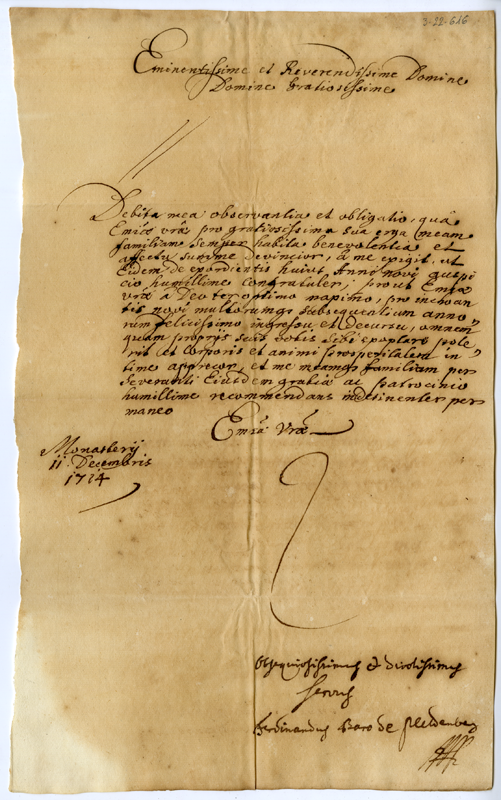 3-22-616
Eminentissime et Reverendissime Domine
Domine Gratiosissime
Debita mea observantia et obligatio, quâ
Emæ vræ pro gratiosissima sua erga meam
familiam semper habita benevolentia et
affectu summe devincior, à me exigit, ut
Eidem de exordientis huius Anni novi auspi
cio humillime congratuler; prout Emæ
vræ à Deo ter optimo maximo, pro inchoan
tis novi multorumq subsequentium anno,
rum felicissimo ingressu et decursu, omnem
quam propriis suis votis sibi exoptare pote
rit et corporis et animi prosperitatem in
time apprecor, et me meamq familiam per
severanti Eiusdem gratiæ ac patrocinio
humillime recommendans indesinenter per
maneo
Emæ Vræ
Monasterij
11 Decembris
1714
Obsequiosissimus et devotissimus
servus
Ferdinandus Baro de Plettenberg